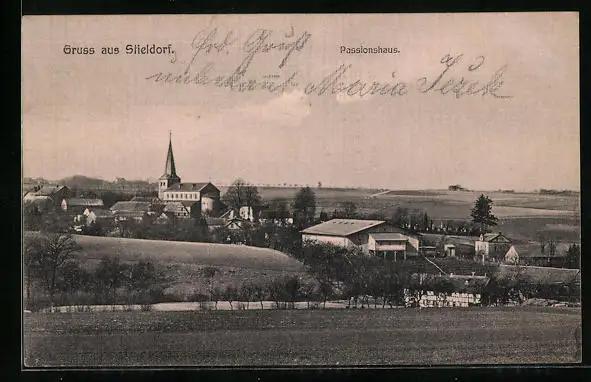 Gruss aus Stieldorf.
Passionshaus.
Frd. Gruß
unbekant Maria Jezek